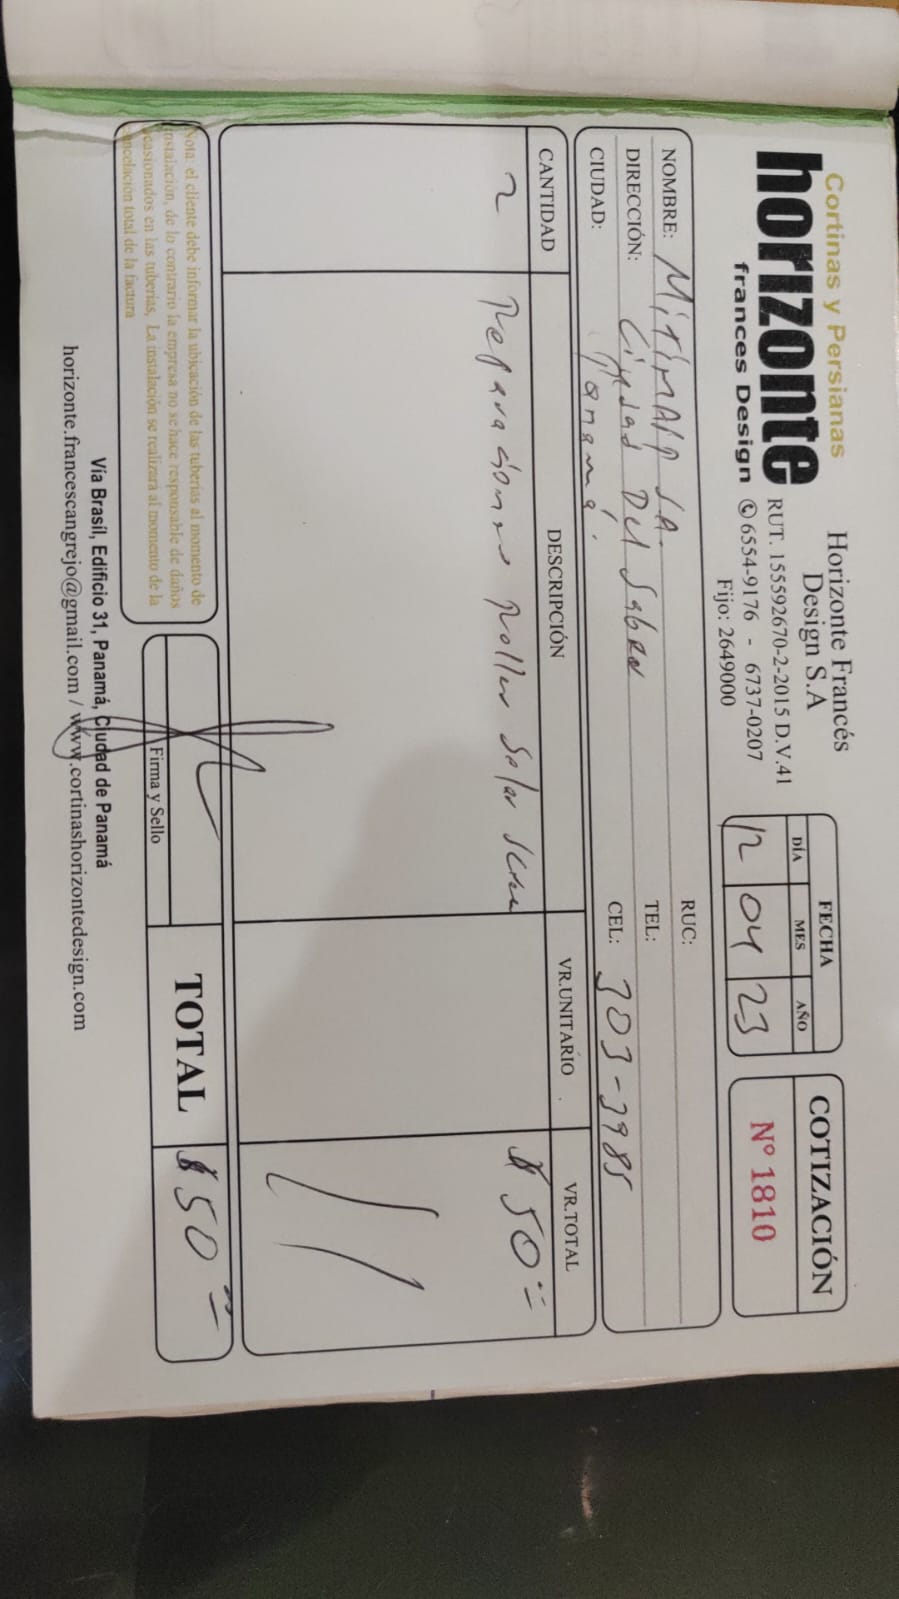 Cortinas y Persianas
horizonte
frances Design
Horizonte Francés
Design S.A
RUT. 155592670-2-2015 D.V.41
6554-9176 - 6737-0207
Fijo: 2649000
FECHA
DÍA MES AÑO
12 04 23
COTIZACIÓN
Nº 1810
NOMBRE: S.A.
RUC:
DIRECCIÓN: Ciudad Del Saber
TEL:
CIUDAD: Panamá.
CEL: 303-3985
CANTIDAD DESCRIPCIÓN VR.UNITARIO VR.TOTAL
2 Reparaciones Roller Solar Screen $50=
Nota: el cliente debe informar la ubicación de las tuberías al momento de
instalación, de lo contrario la empresa no se hace responsable de daños
ocasionados en las tuberías, La instalación se realizará al momento de la
cancelación total de la factura
Firma y Sello
TOTAL $50=
Vía Brasíl, Edificio 31, Panamá, Ciudad de Panamá
horizonte.francescangrejo@gmail.com / www.cortinashorizontedesign.com